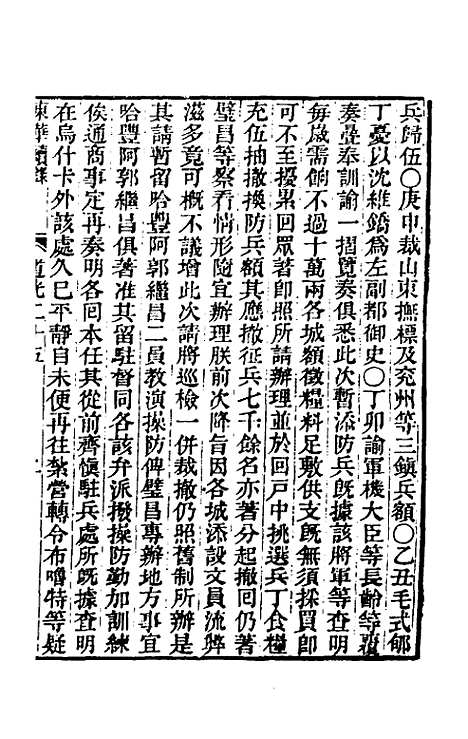 兵歸伍○庚申裁山東撫標及兗州等三鎮兵額○乙丑毛式郇
丁憂以沈維鐈爲左副都御史○丁卯諭軍機大臣等長齡等覆
奏疊奉訓諭一摺覽奏俱悉此次暫添防兵旣據該將軍等查明
每歲需餉不過十萬兩各城額徵糧料足敷供支旣無須採買卽
可不至擾累回眾著卽照所請辦理並於回戶中挑選兵丁食糧
充伍抽撤換防兵額其應撤征兵七千餘名亦著分起撤回仍著
璧昌等察看情形隨宜辦理朕前次降旨因各城添設文員流弊
滋多竟可槪不議增此次請將巡檢一併裁撤仍照舊制所辦是
其請暫留哈豐阿郭繼昌二員教演操防俾璧昌專辦地方事宜
哈豐阿郭繼昌俱著准其留駐督同各該弁派撥操防勤加訓練
俟通商事定再奏明各回本任其從前齊愼駐兵處所旣據查明
在烏什卡外該處久已平靜自未便再往紮營轉令布嚕特等疑
東華續錄 道光二十五